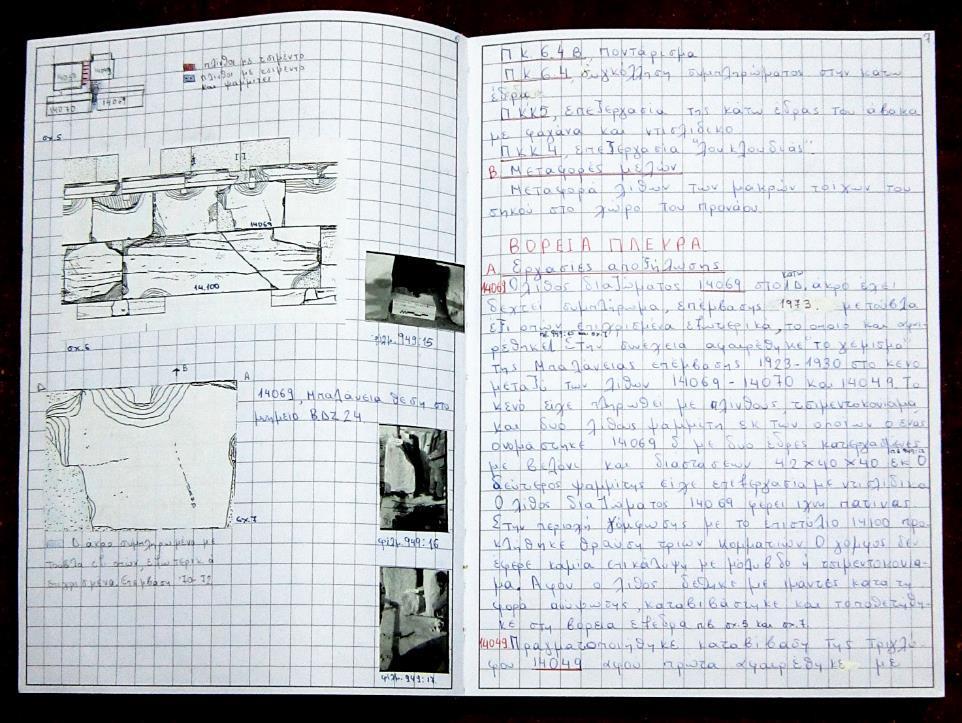 6
14069
14049
πλίνθοι με τσιμέντο
πλίνθοι με τσιμέντο
και ψαμμίτες
14070
14069
σχ.5
14069
14.100
φιλμ.949:15
σχ.6
Β
Δ
Α
14069, Μπαλάνεια θέση στο
μνημείο ΒΔΖ24
σχ.7
φιλμ.949:16
Ο άκρο συμπληρωμένο με
τούβλα
επιχρισμένα. Επέμβαση
φιλμ.949:17
7
ΠΚ 6.4 Β Ποντάρισμα
ΠΚ 6.4, συγκόλληση συμπληρώματος στην κάτω
έδρα
ΠΚΚ5, επεξεργασία της κάτω έδρας του άβακα
με φαγάνα και ντισλίδικο
ΠΚΚ 4, επεξεργασία "λουκλουδιάς".
Β. Μεταφορές μελών
Μεταφορά λίθων των μακρών τοίχων του
σηκού στο χώρο του Προνάου.
ΒΟΡΕΙΑ ΠΛΕΥΡΑ
Α. Εργασίες αποξήλωσης
κάτω
14069 Ο λίθος διαζώματος 14069 στο Δ. άκρο έχει
δεχτεί συμπλήρωμα, επέμβασης 1973 με τούβλα
έξι οπών επιχρισμένα εξωτερικά, το οποίο και αφαι-
ρέθηκε. Στην συνέχεια αφαιρέθηκε "το γέμισμα"
της Μπαλάνειας επέμβασης 1923-1930 στο κενό
μεταξύ των λίθων 14069-14070 και 14049. Το
κενό είχε πληρωθεί με πλίνθους, τσιμεντοκονίαμα
και δυο λίθους ψαμμίτη εκ των οποίων ο ένας
ονομάστηκε 14069 δ με δυο έδρες κατεργασμένες
με βελόνι και διαστάσεων 42×40×40 εκ Ο
δεύτερος ψαμμίτης είχε επεξεργασία με ντισλίδικο
Ο λίθος διαζώματος 14069 φέρει ίχνη πάτινας
Στην περιοχή γόμφωσης με το επιστύλιο 14100 προ-
κλήθηκε θραύση τριών κομματιών Ο γόμφος δεν
έφερε καμία επικάλυψη με μόλυβδο ή τσιμεντοκονία-
μα. Αφού ο λίθος δέθηκε με ιμάντες κατά τη
φορά ανύψωσης, καταβιβάστηκε και τοποθετήθη-
κε στη βόρεια εξέδρα πβ σχ.5 και σχ.7
14049 Πραγματοποιήθηκε καταβίβαση της τριγλύ-
φου 14049 αφού πρώτα αφαιρέθηκε με